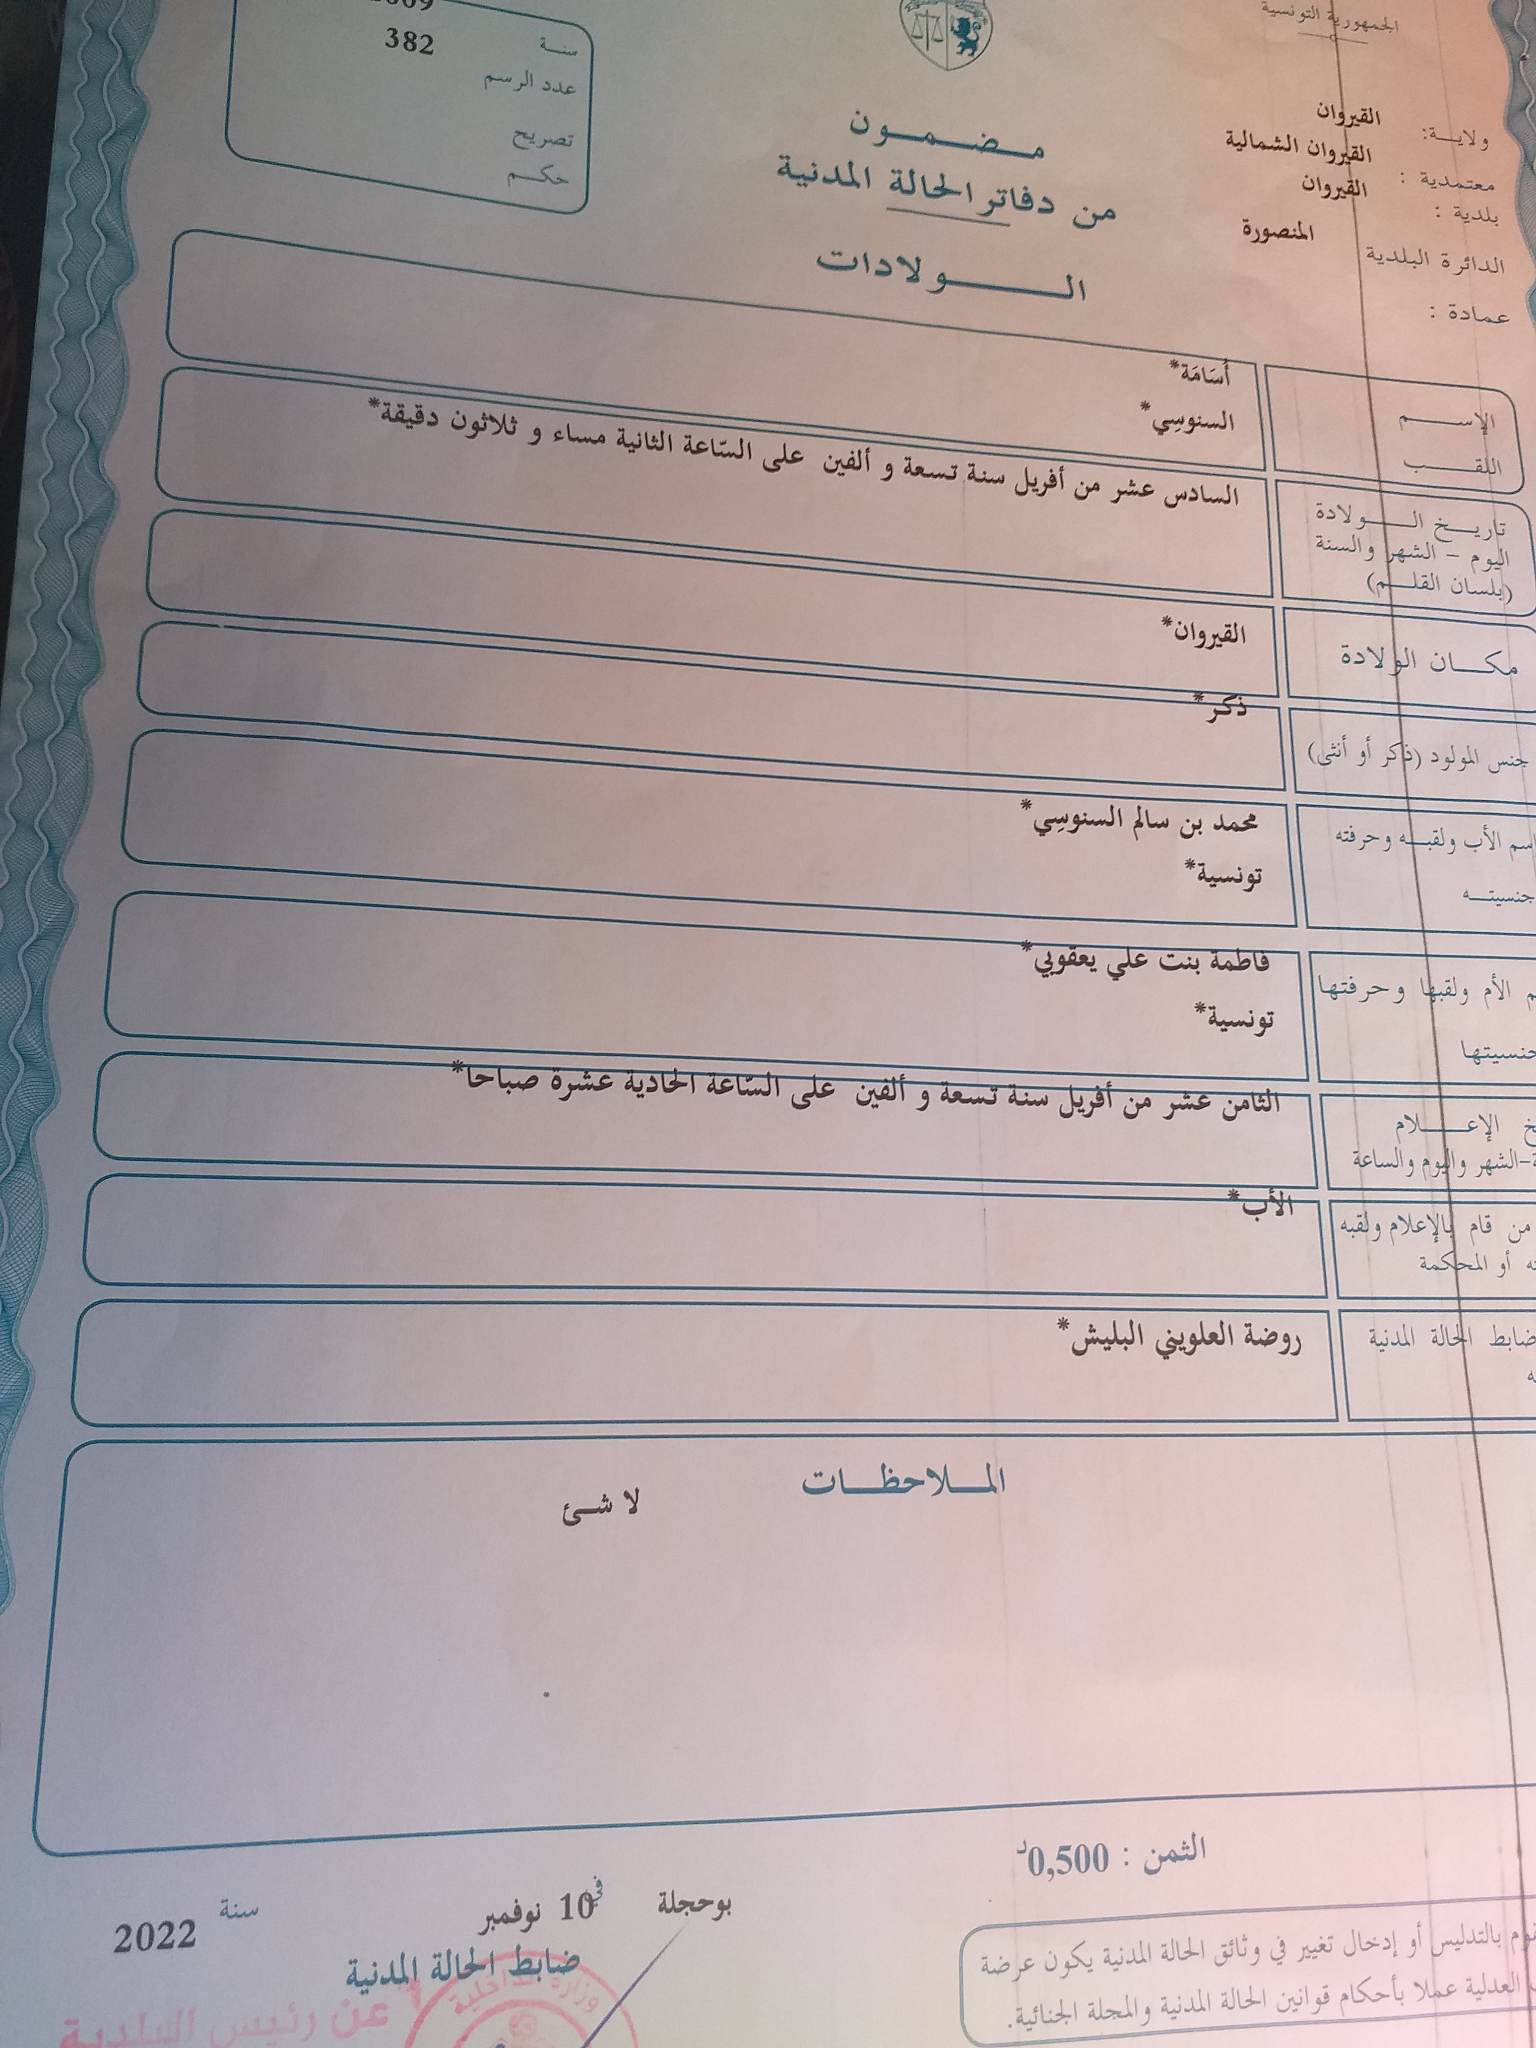 الجمهورية التونسية
ولايـــة: القيروان
معتمدية : القيروان الشمالية
بلدية : القيروان
الدائرة البلدية المنصورة
عمادة :
مـــضـــمـــون
من دفاتر الحالة المدنية
الـــــــولادات
سنــة
عدد الرسم 382
تصريح
حكــم
الإســـــم أُسَامَة*
اللقـــــب السنوسِي*
تاريـــخ الــــــولادة
اليوم – الشهر والسنة
(بلسان القلـــم)
السادس عشر من أفريل سنة تسعة و ألفين على السّاعة الثانية مساء و ثلاثون دقيقة*
مكـــان الولادة القيروان*
جنس المولود (ذكر أو أنثى) ذكر*
اسم الأب ولقبــه وحرفته محمد بن سالم السنوسِي*
جنسيتــه تونسية*
الأم ولقبها وحرفتها فاطمة بنت علي يعقوبي*
جنسيتها تونسية*
الإعـــــلام
الشهر واليوم والساعة
الثامن عشر من أفريل سنة تسعة و ألفين على السّاعة الحادية عشرة صباحا*
من قام بالإعلام ولقبه
أو المحكمة
الأب*
ضابط الحالة المدنية روضة العلويني البليش*
المـــلاحظـــات
لا شــئ
الثمن : 0,500د
بوحجلة في 10 نوفمبر سنة 2022
ضابط الحالة المدنية
عن رئيس البلدية
وزارة الداخلية
بالتدليس أو إدخال تغيير في وثائق الحالة المدنية يكون عرضة
العدلية عملا بأحكام قوانين الحالة المدنية والمجلة الجنائية.